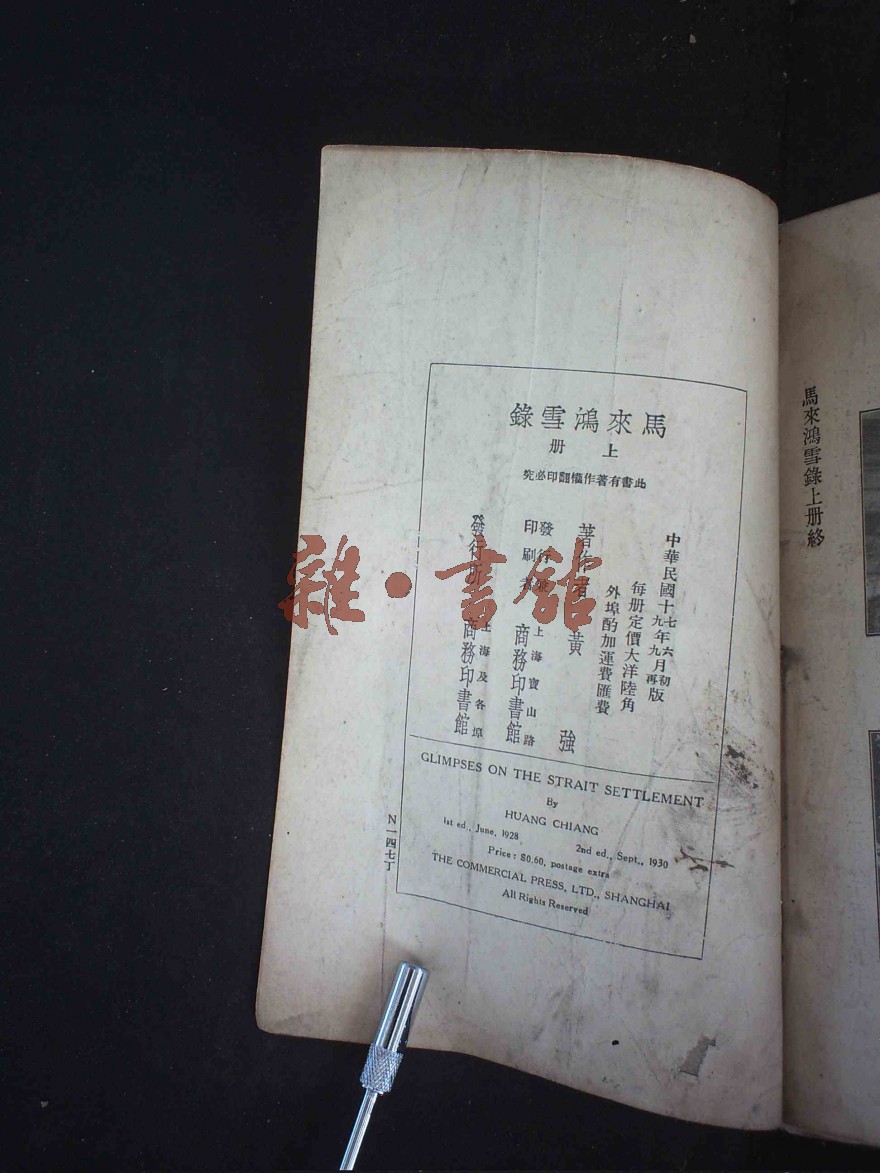 馬來鴻雪錄上册終
馬來鴻雪錄
上册
此書有著作權翻印必究
中華民國十七年六月初版
十九年九月再版
每册定價大洋陸角
外埠酌加運費匯費
著作者 黃強
發行兼印刷者 上海寶山路 商務印書館
發行所 上海及各埠 商務印書館
GLIMPSES ON THE STRAIT SETTLEMENT
By
HUANG CHIANG
1st ed., June, 1928 2nd ed., Sept., 1930
Price: $0.60, postage extra
THE COMMERCIAL PRESS, LTD., SHANGHAI
All Rights Reserved
N一四七丁
雜·書館